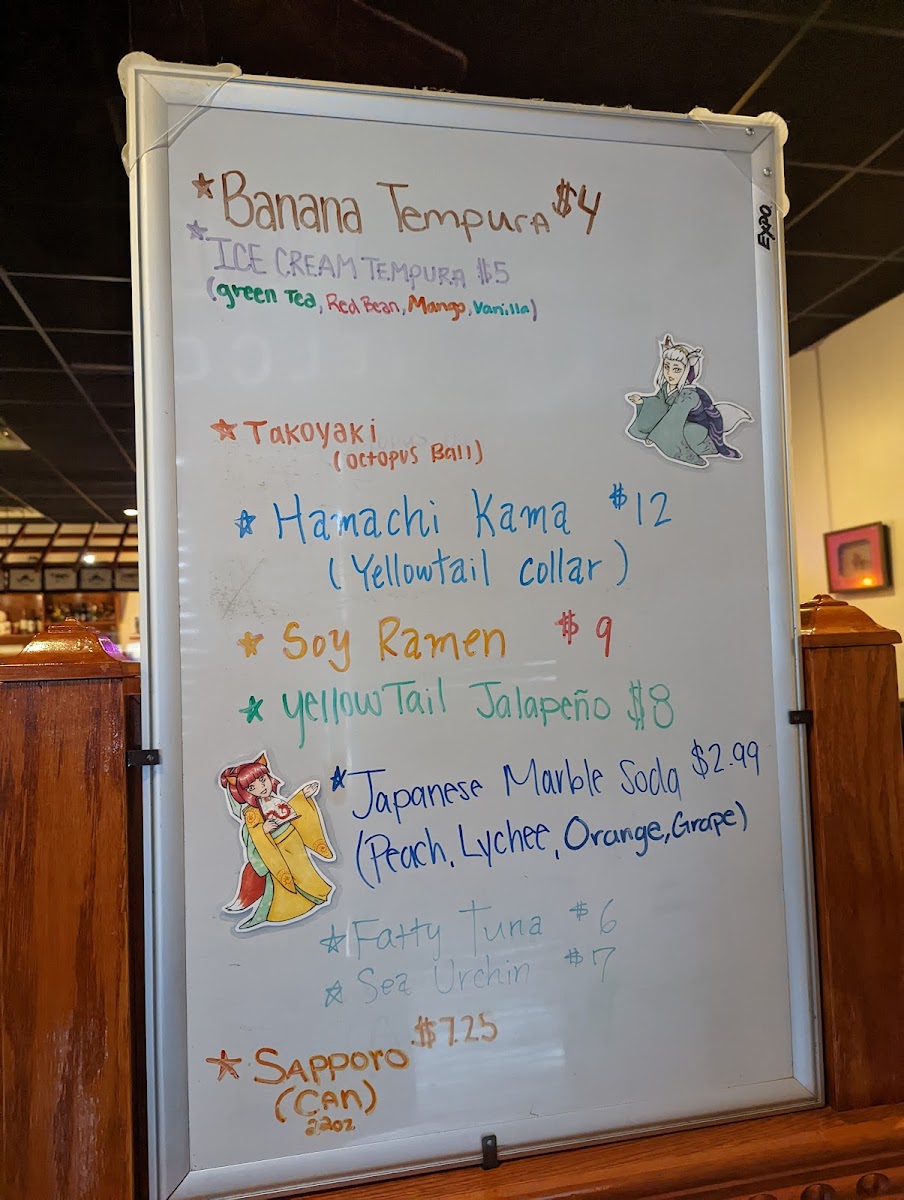 Banana Tempura $4
ICE CREAM TEMPURA $5
(green Tea, Red Bean, Mango, Vanilla)
Takoyaki
(Octopus Ball)
Hamachi Kama $12
(Yellowtail collar)
Soy Ramen $9
yellowTail Jalapeño $8
Japanese Marble Soda $2.99
(Peach, Lychee, Orange, Grape)
Fatty Tuna $6
Sea Urchin $7
$7.25
SAPPORO
(CAN)
22oz
EXPO